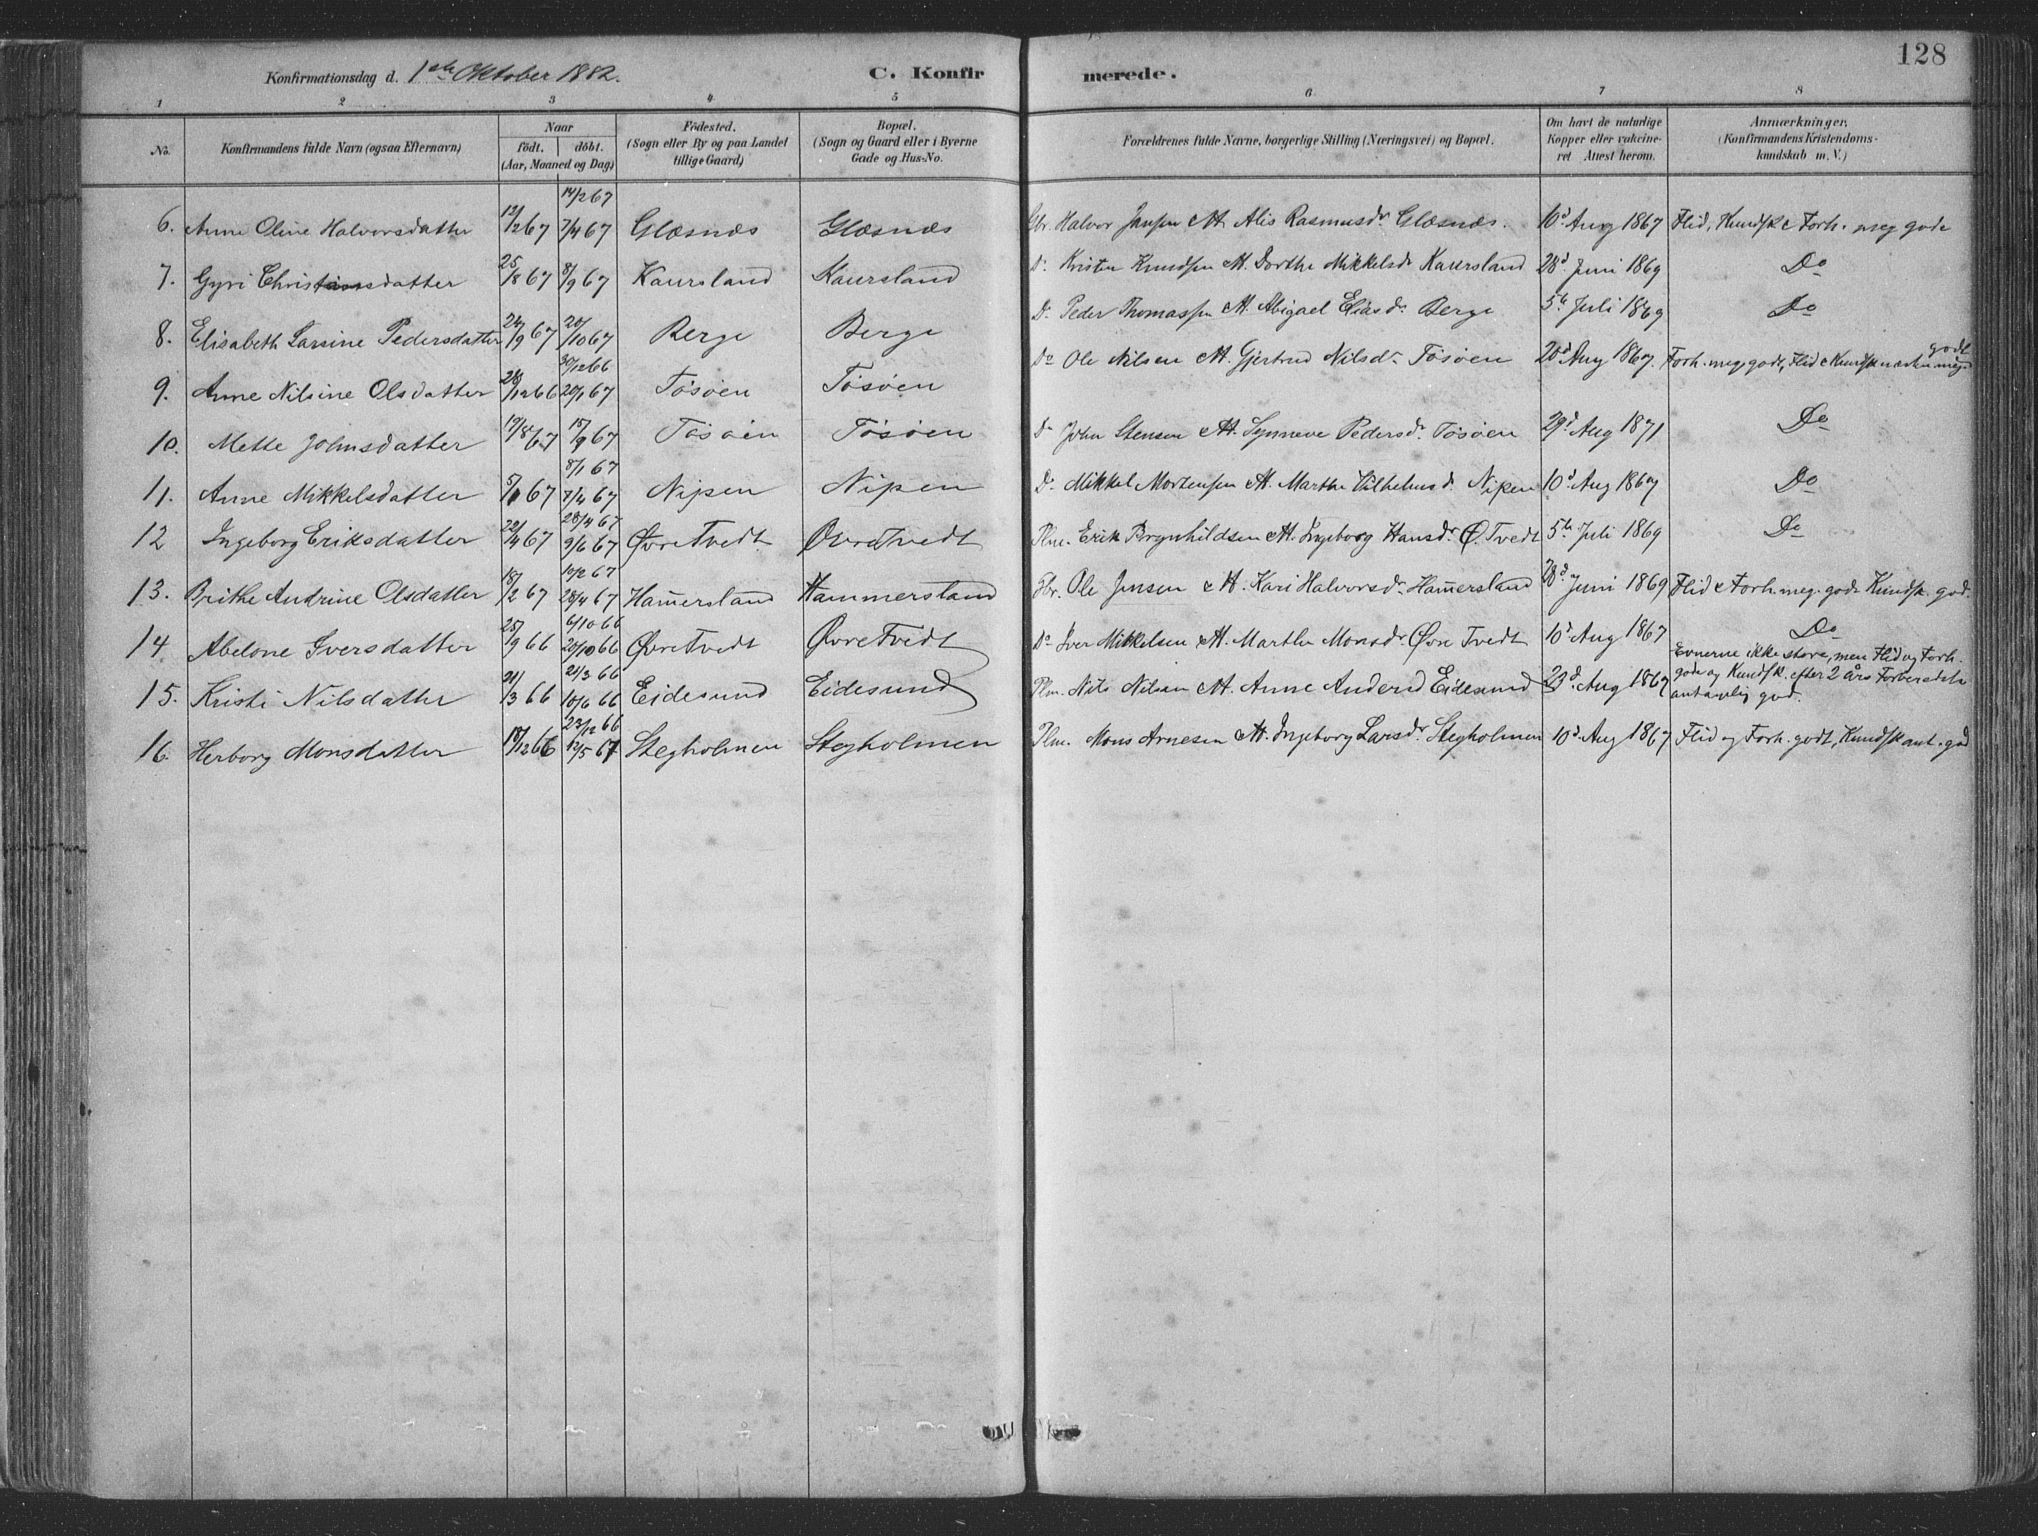 128
Konfirmationsdag d. 1ste Oktober 1882. C. Konfirmerede.
1 2 3 4 5 6 7 8
No. Konfirmandens fulde Navn (ogsaa Efternavn) Naar födt. döbt. (Aar, Maaned og Dag) Födested. (Sogn eller By og paa Landet tillige Gaard) Bopæl. (Sogn og Gaard eller i Byerne Gade og Hus-No. Forældrenes fulde Navne, borgerlige Stilling (Næringsvei) og Bopæl. Om havt de naturlige Kopper eller vakcineret Attest herom. Anmærkninger. (Konfirmandens Kristendomskundskab m. V.)
6. Anne Oline Halvorsdatter 12/2 67 14/2 67 7/4 67 Glæsnæs Glæsnæs Gbr. Halvor Jansen & H. Alis Rasmusdr Glæsnæs. 10d Aug 1867 Flid, Kundsk & Forh. meg gode
7. Gyri Christiansdatter 25/8 67 8/9 67 Kaursland Kaursland Do Kristen Knudsen & H. Dorthe Mikkelsdr Kaursland 28d Juni 1869 Do
8. Elisabeth Larsine Pedersdatter 24/9 67 20/10 67 Berge Berge Do Peder Thomassen & H. Abigael Eliasdr Berge 5te Juli 1869 Do
9. Anne Nilsine Olsdatter 28/12 66 30/12 66 20/1 67 Tösöen Tösöen Do Ole Nilsen & H. Gjertrud Nilsdr Tösöen 20d Aug 1867. Forh. meg. godt, Flid & Kundsk næsten meget godt
10. Mette Johnsdatter 19/8 67 15/9 67 Tösöen Tösöen Do John Stensen & H. Synneve Pedersdr Tösöen 29d Aug 1871 Do
11. Anne Mikkelsdatter 5/1 67 8/1 67 7/4 67 Nipen Nipen Do Mikkel Mortensen & H. Marthe Vilhelmsd. Nipen 10d Aug 1867 Do
12 Ingeborg Eriksdatter 22/4 67 28/4 67 9/6 67 Øvre Tvedt Øvre Tvedt Plm. Erik Brynhildsen & H. Ingeborg Hansdr Ø. Tvedt 5te Juli 1869 Do
13. Brithe Andrine Olsdatter 18/2 67 10/2 67 28/4 67 Ham̄ersland Hammersland Gbr. Ole Jensen & H. Kari Halvorsdr Ham̄ersland 28d Juni 1869 Flid & Forh. meg. gode Kundsk. god.
14. Abelone Iversdatter 25/9 66 6/10 66 20/10 66 Øvre Tvedt Øvre Tvedt Do Iver Mikkelsen & H. Marthe Monsdr Øvre Tvedt 10d Aug 1867 Do
15. Kristi Nilsdatter 21/3 66 21/3 66 10/6 66 Eidesund Eidesund Plm. Nils Nilsen & H. Anne Andersd Eidesund 29d Aug 1867 Evnerne ikke store, men Flid og Forh. gode og Kundsk. efter 2 års Forberedelse antagelig god.
16. Herborg Monsdatter 18/12 66 23/12 66 12/5 67 Stegholmen Stegholmen Plm. Mons Arnesen & H. Ingeborg Larsdr Stegholmen 10d Aug 1867 Flid og Forh. godt, Kundsk ant. god